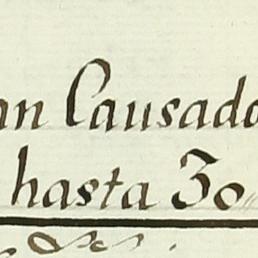 an Causado
hasta 30